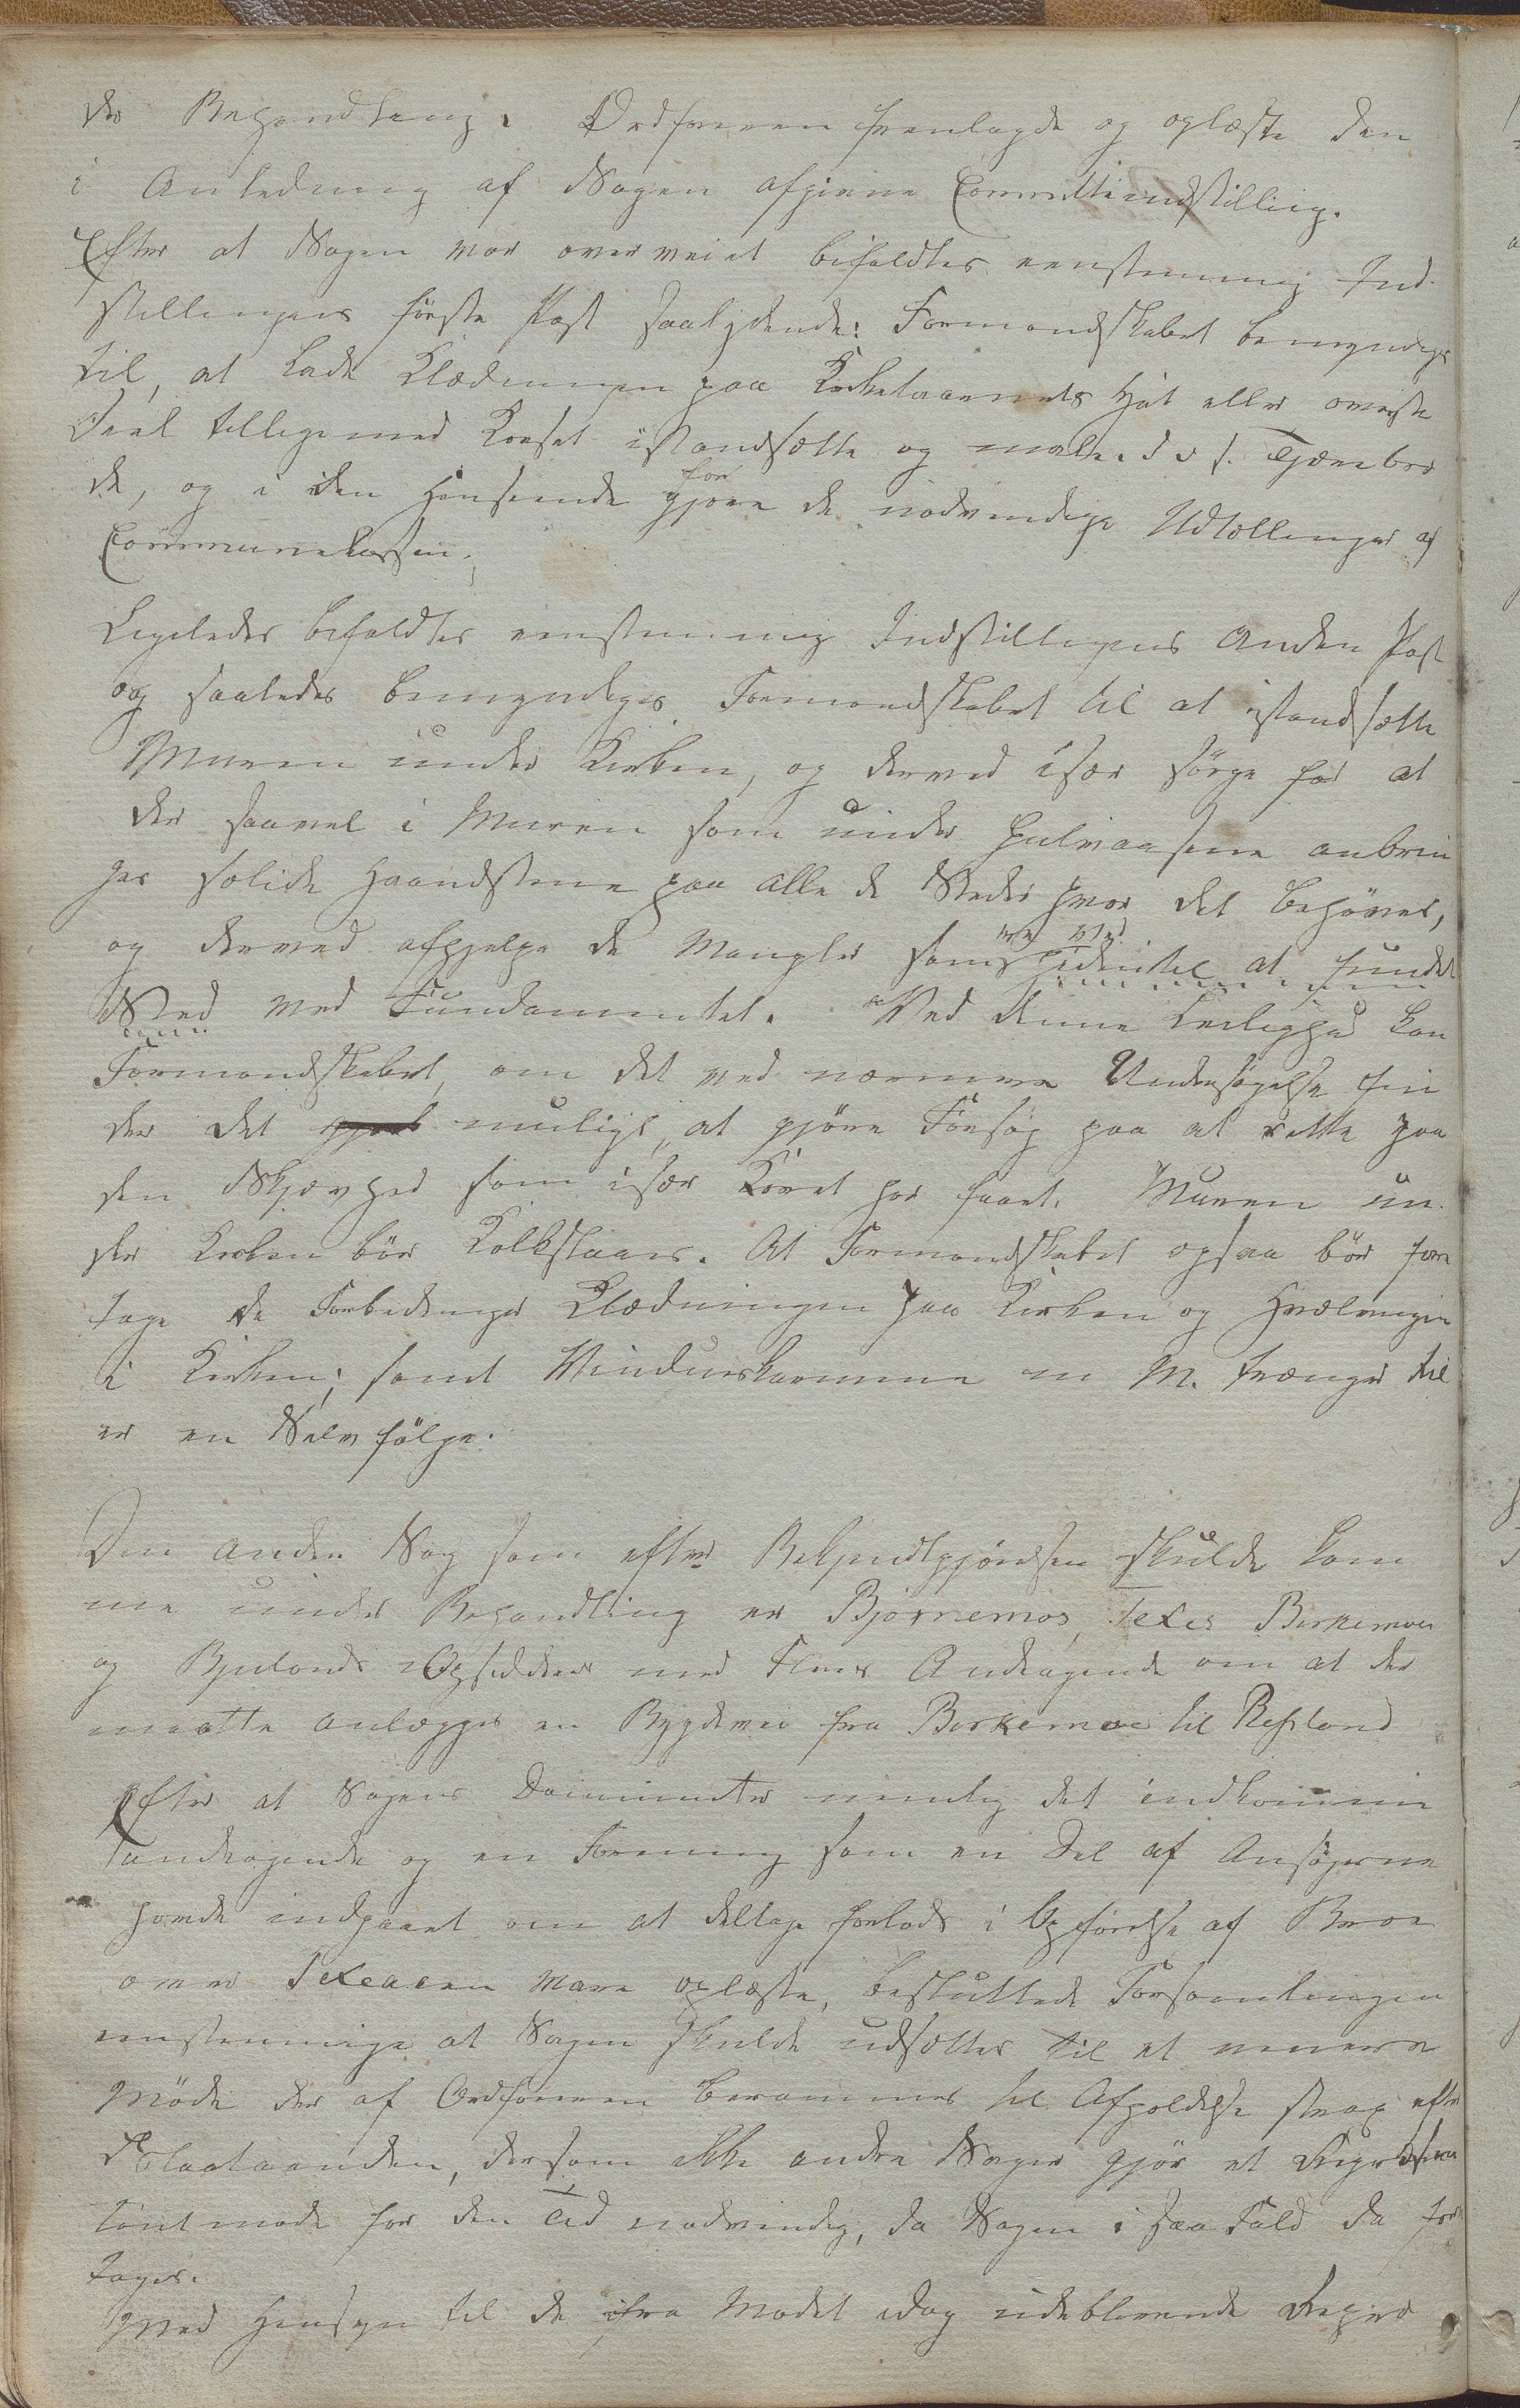 des Behandling. Ordføreren fremlagde og oplæste den
i Anledning af Sagen afgivne Committeindstilling.
Efter at Sagen var overveiet bifaldtes eenstemmig Ind-
stillingens første Post saalydende: Formandskabet bemyndiges
til, at lade Klædningen paa Kirketaarnets Hat eller øverste
Deel tilligemed Korset istandsætte og male d v s. Tjærebre
de, og i den Henseende gjøre de nødvendige Udtællinger af
for
Communekassen;
Ligeledes bifaldtes eenstemmig Indstillingens Anden Post
og saaledes bemyndiges Formandskabet til at istandsætte
Muren under Kirken, og derved især sørge for at
der saavel i Muren som under Gulvaasene anbrin
ges solide Haandstene paa alle de Steder hvor det behøves,
og derved afhjelpe de Mangler som at finde
Sted ved Fundamentet. Ved denne Leilighed kan
Formandskabet, om det ved nærmere Undersøgelse fin
der det muligt, at gjøre Forsøg paa at rette paa
den Skjævhed som især Koret har faaet. Muren un-
der Kirken bør Kalkslaaes. At Formandskabet ogsaa bør fore
tage de Forbedringer Klædningen paa Kirken og Hvælvingen
i Kirken; samt Vindueskarmene m M. trænger til
er en Selvfølge.
Den anden Sag som efter Bekjendtgjørelsen skulde kom
me under Behandling er Bjørnemos, Texes Birkemoes
og Bjulands Opsiddere med Fleres Andragende om at der
maatte anlægges en Bygdevei fra Birkemoe til Refsland
Efter at Sagens Documenter nemlig det indkomne
andragende og en Forening som en Del af Ansøgerne
havde indgaaet om at deltage forlods i Opførelse af Broe
over Texeaaen vare oplæste, besluttede Forsamlingen
eenstemmige at Sagen skulde udsættes til et senere
Møde der af Ordføreren berammes til Afholdelse strax efter
Slaataanden, dersom ikke andre Sager gjør et Repræsen
tantmøde før den Tid nødvendig, da Sagen i saa Fald da fore
tages.
Med Hensyn til de fra Mødet idag udeblevende Repræ